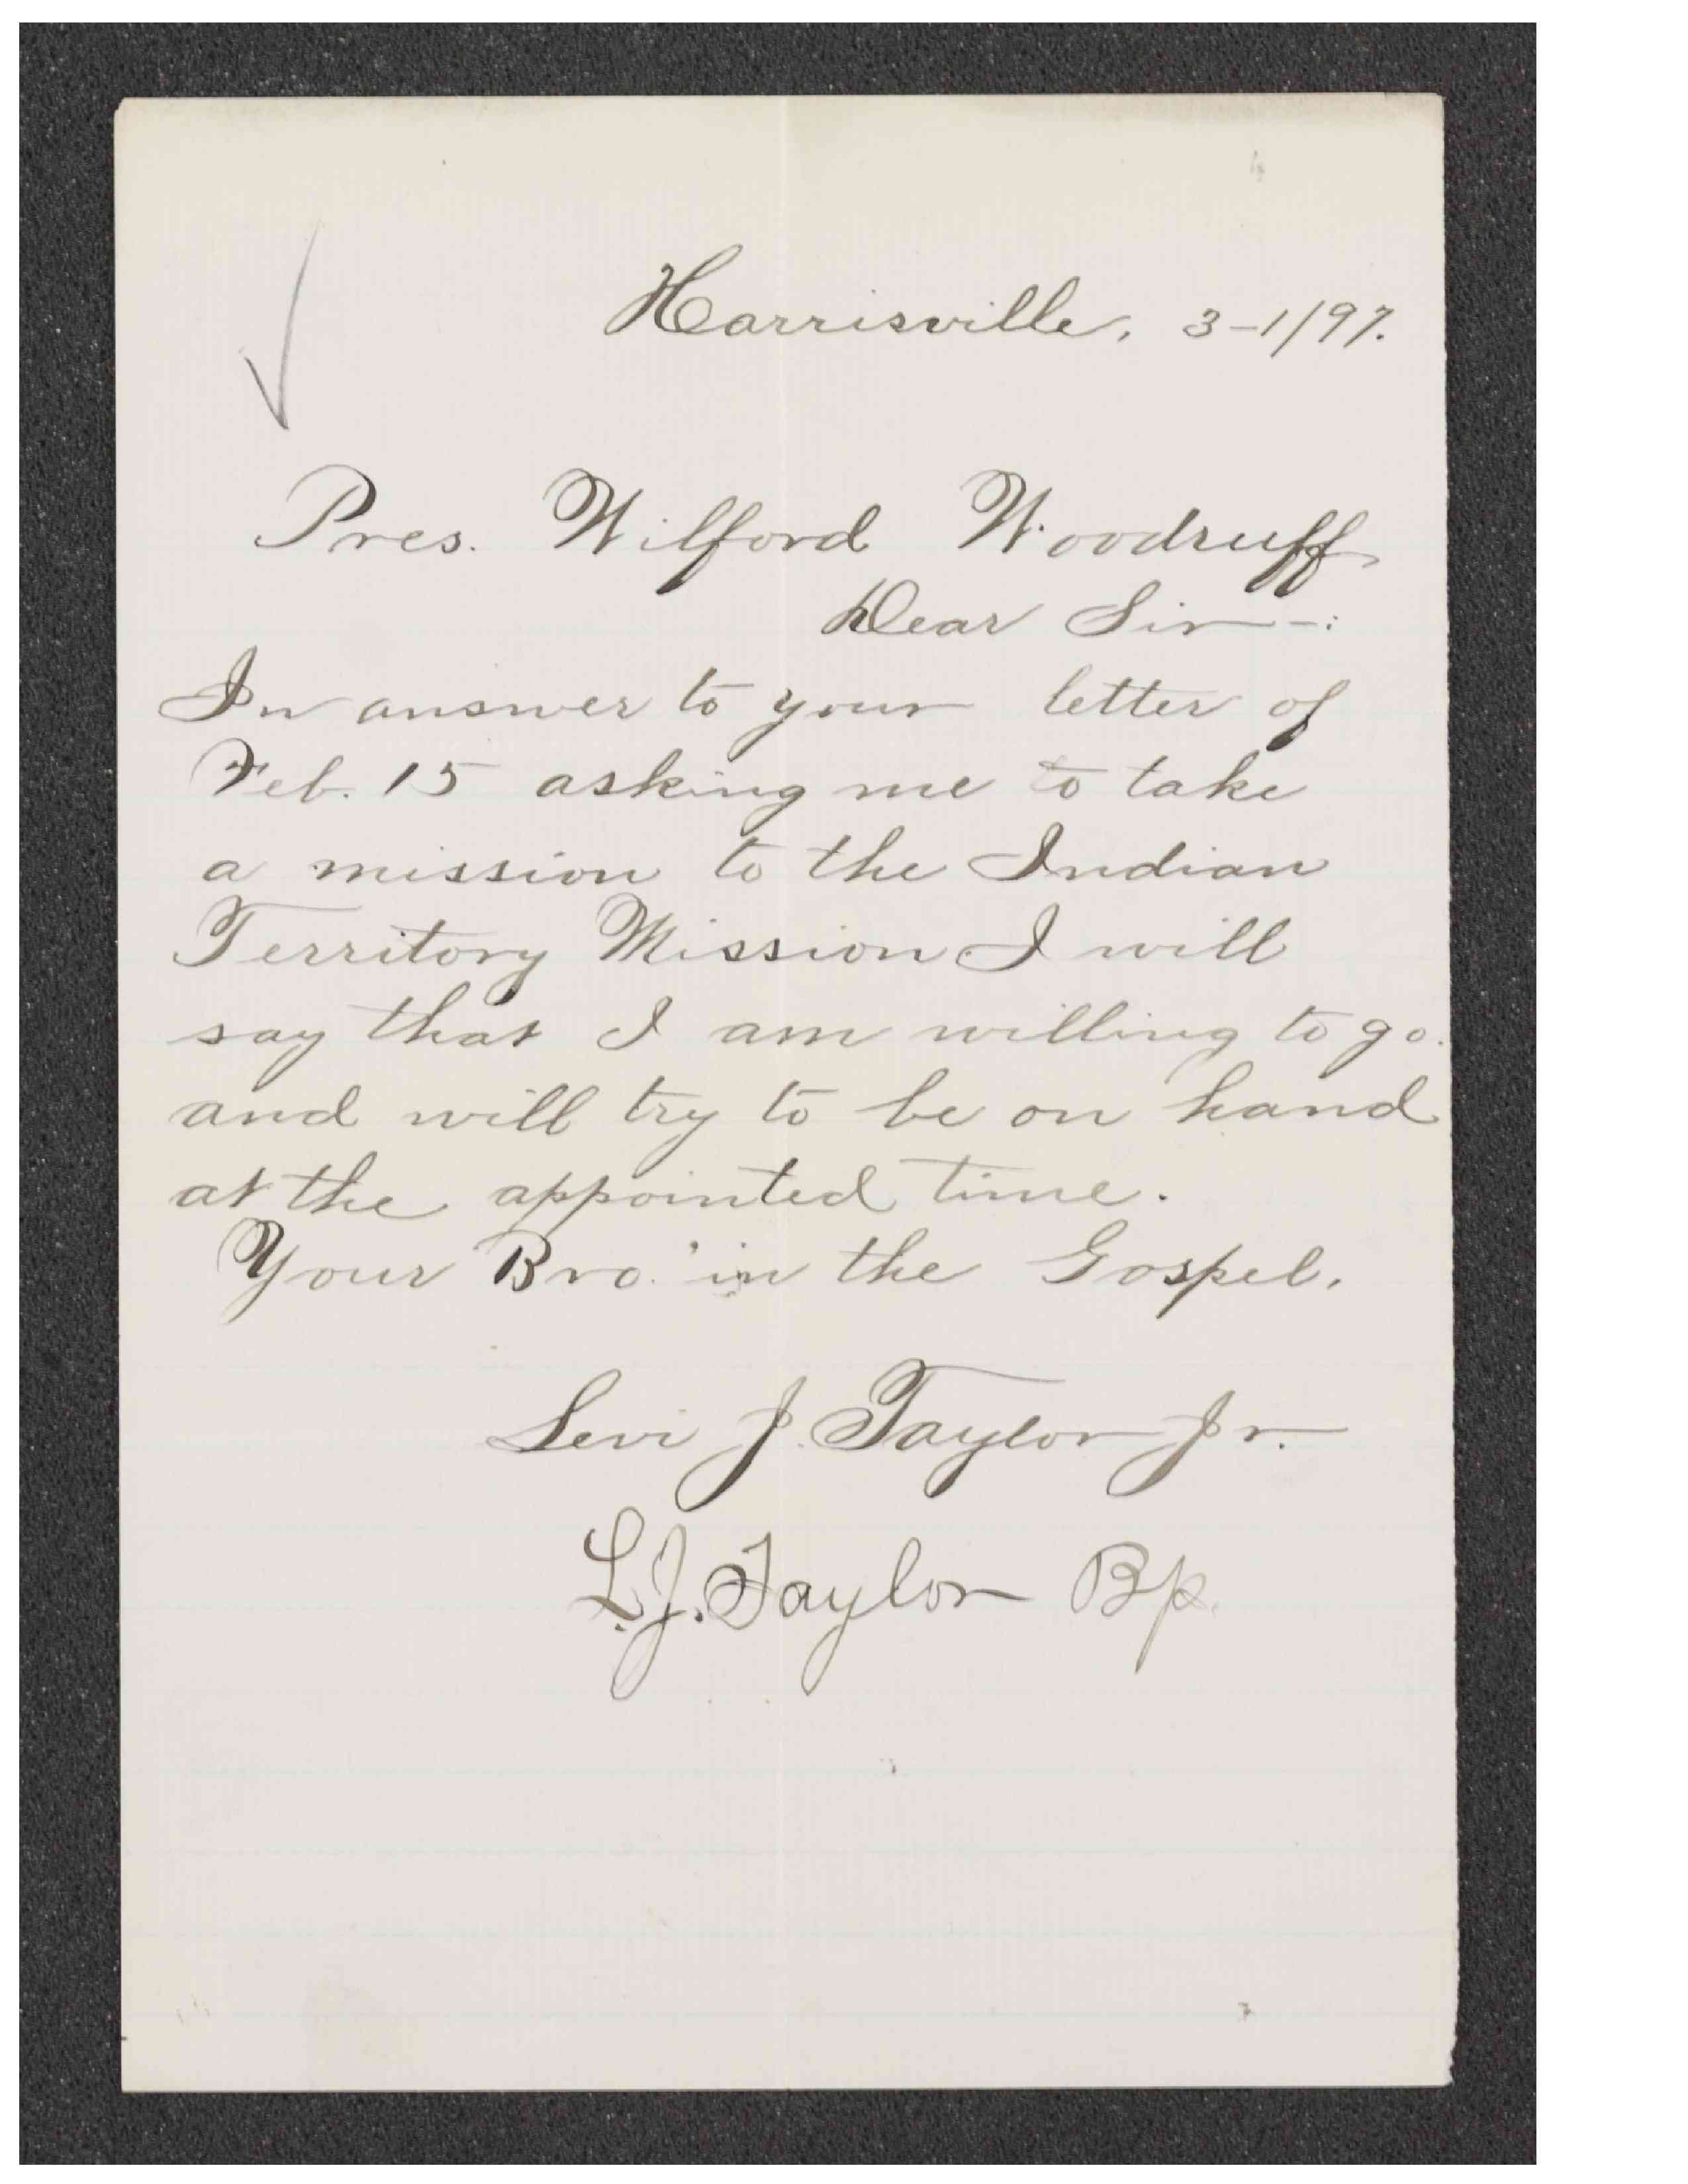 Harrisville, 3-1/97.
Pres. Wilford Woodruff
Dear Sir-:
In answer to your letter of
Feb. 15 asking me to take
a mission to the Indian
Territory Mission I will
say that I am willing to go.
and will try to be on hand
at the appointed time.
Your Bro. in the Gospel.
Levi J. Taylor Jr.
L.J. Taylor Bp.